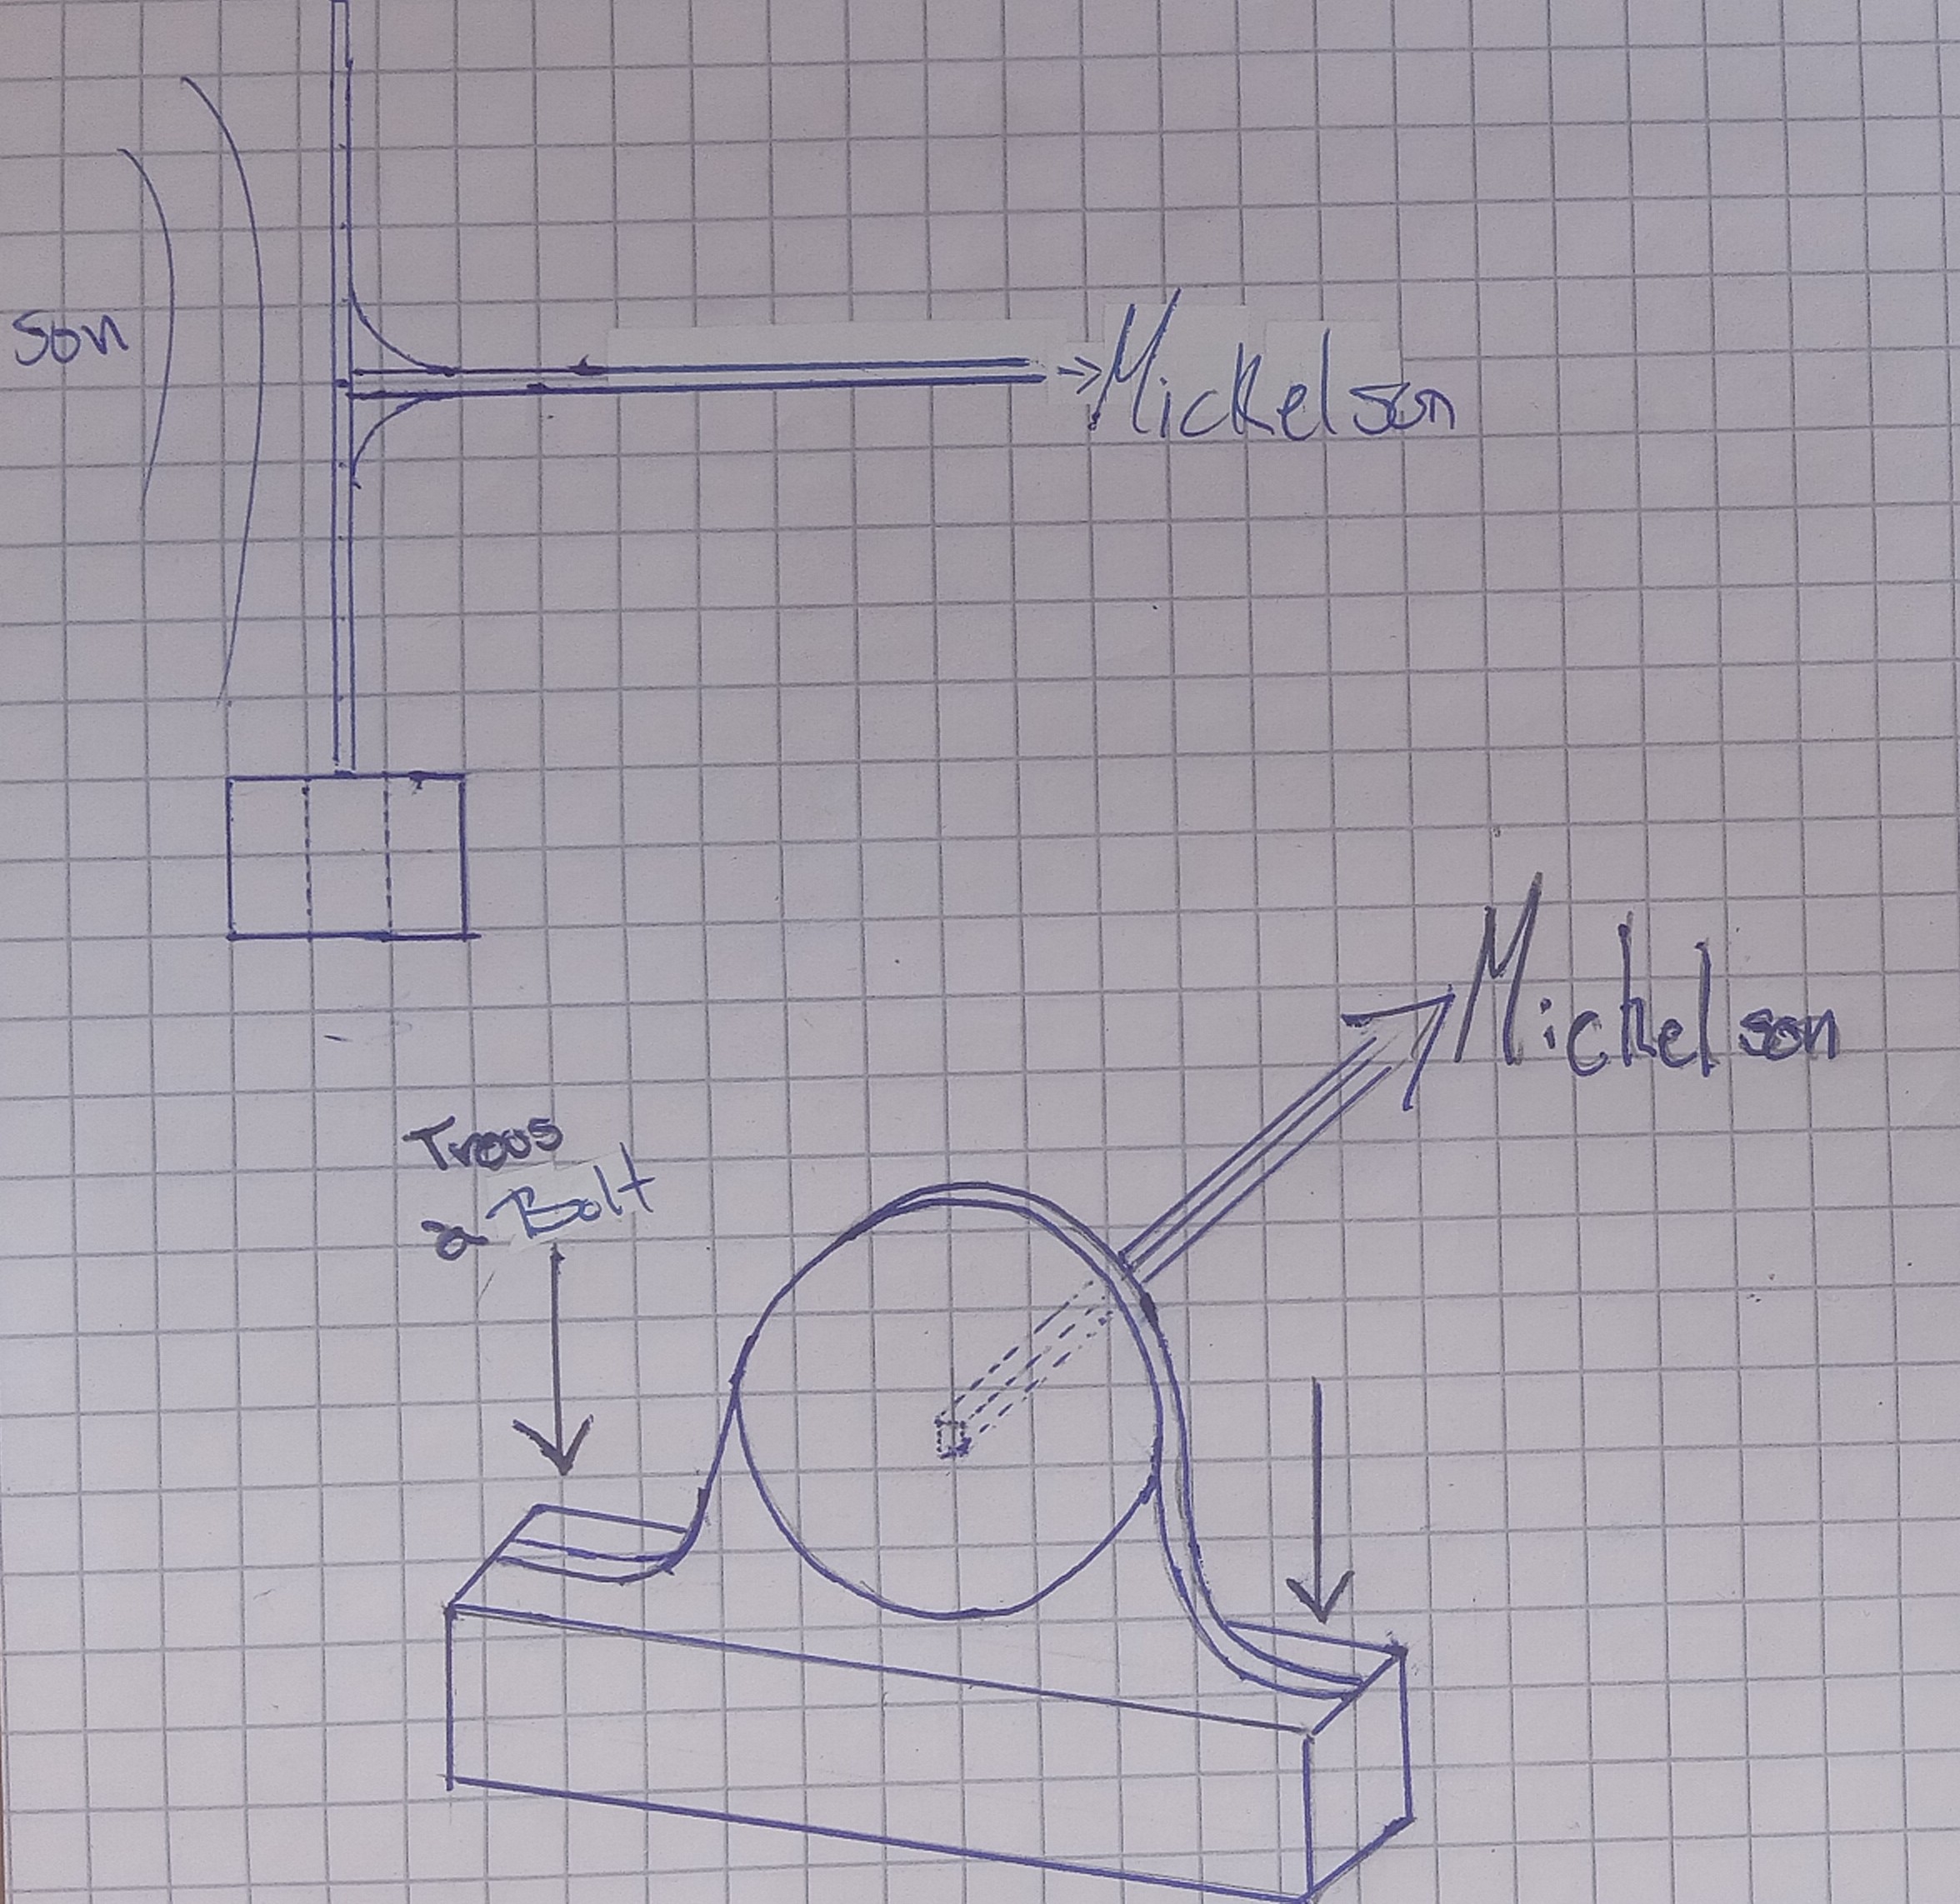 son
Mickelson
Mickelson
Trous
à Bolt